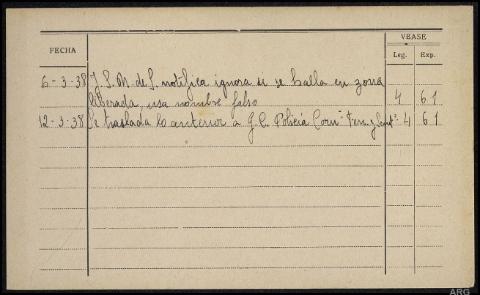 VEASE
FECHA
Leg. Exp.
6-3-38 J. S. M. de S. notifica ignora si se halla en zona
liberada, usa nombre falso 4 61
12-3-38 Se traslada lo anterior a G. C. Policía Com 4 61
ARG